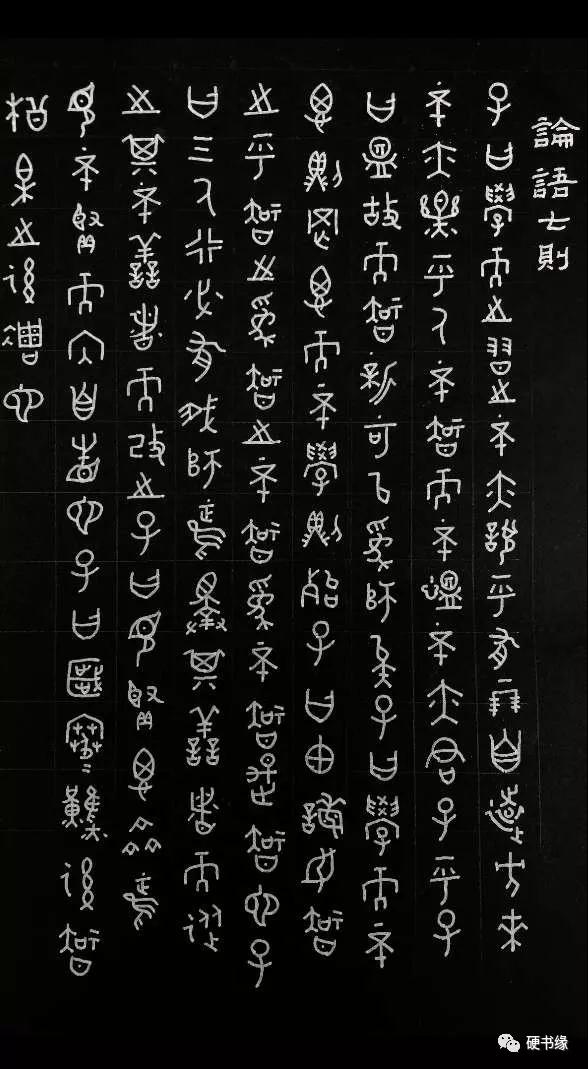 論語七則
子曰學而時習之不亦說乎有朋自遠方來
不亦樂乎人不知而不慍不亦君子乎子
曰溫故而知新可以為師矣子曰學而不
思則罔思而不學則殆子曰由誨女知
之乎知之為知之不知為不知是知也子
曰三人行必有我師焉擇其善者而從
之其不善者而改之子曰見賢思齊焉
見不賢而內自省也子曰歲寒然後知
松柏之後凋也
硬书缘